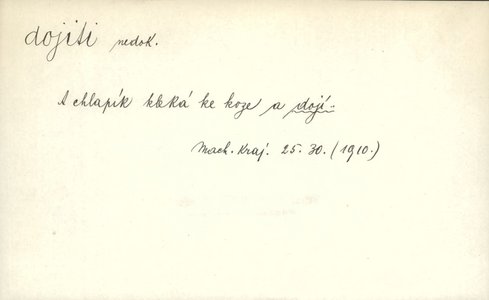 dojiti nedok.
A chlapík kleká ke koze a dojí.
Mach. Kraj. 25. 30. (1910.)